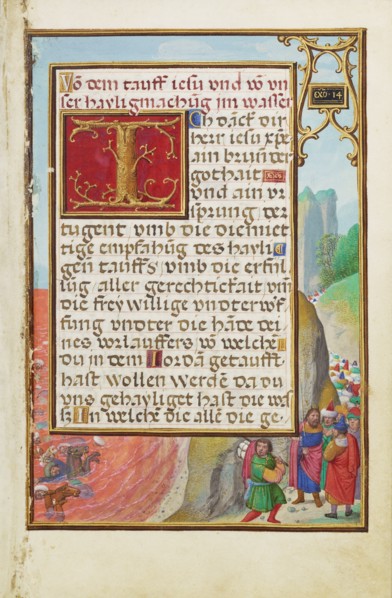 EXO · 14
Võ dem tauff iesu vnd võ vn
ser hayligmachũg im wasser
Ich danck dir
herr iesu xp̃e
ain brun der
gothait
vnd ain vr
sprung der
tugent vmb die diemiet
tige empfahung des hayli
gen tauffs vmb die erfül
lũg aller gerechtickait vm̃
die freywillige vndterwëf
fung vndter die hãde dei
nes vorlauffers võ welchẽ
du in dem Iordã getaufft
hast wollen werden da du
vns gehayliget hast die was
In welchẽ die alle die ge-